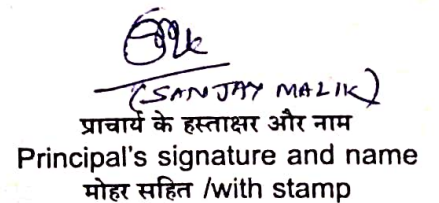 (SANJAY MALIK)
प्राचार्य के हस्ताक्षर और नाम
Principal's signature and name
मोहर सहित /with stamp